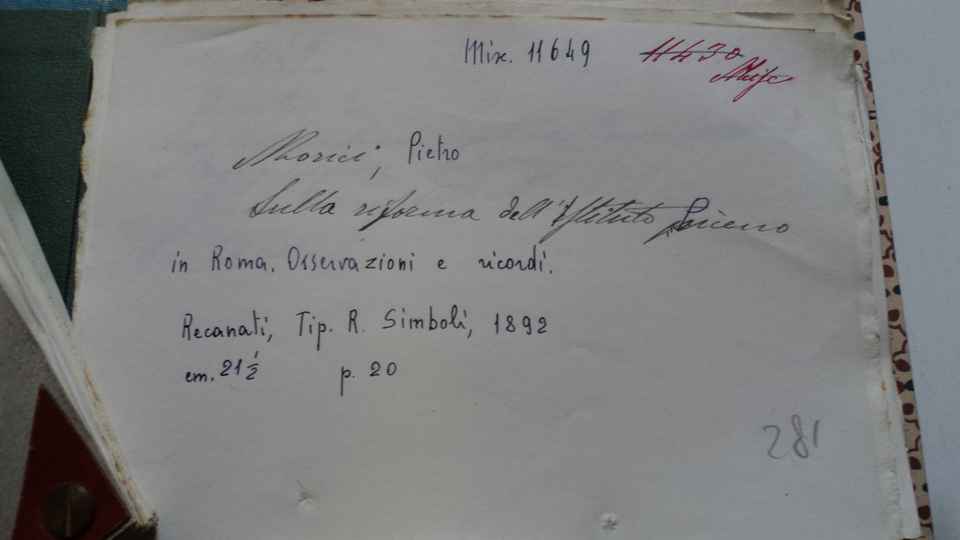 Misc. 11649
11430
Misc
Morici, Pietro
Sulla riforma dell'Istituto Piceno
in Roma. Osservazioni e ricordi.
Recanati, Tip. R. Simboli, 1892
cm. 21 1/2 p. 20
281